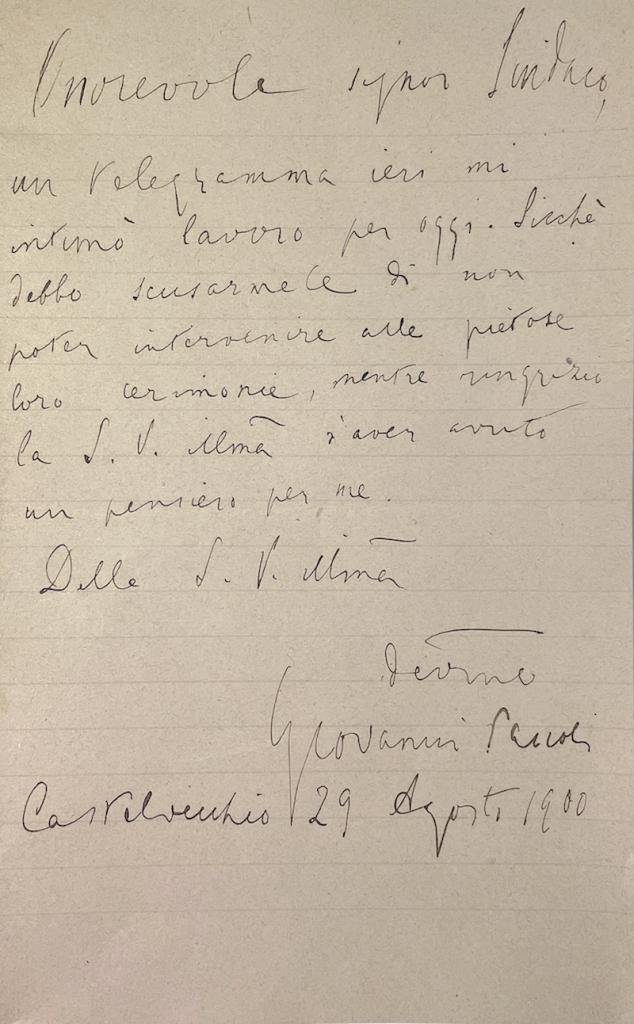 Onorevole signor Sindaco,
un telegramma ieri mi
intimò lavoro per oggi. Sicchè
debbo scusarmele di non
poter intervenire alle pietose
loro cerimonie, mentre ringrazio
la S. V. Illmã d'aver avuto
un pensiero per me.
Della S. V. Illmã
devmo
Giovanni Pascoli
Castelvecchio 29 Agosto 1900